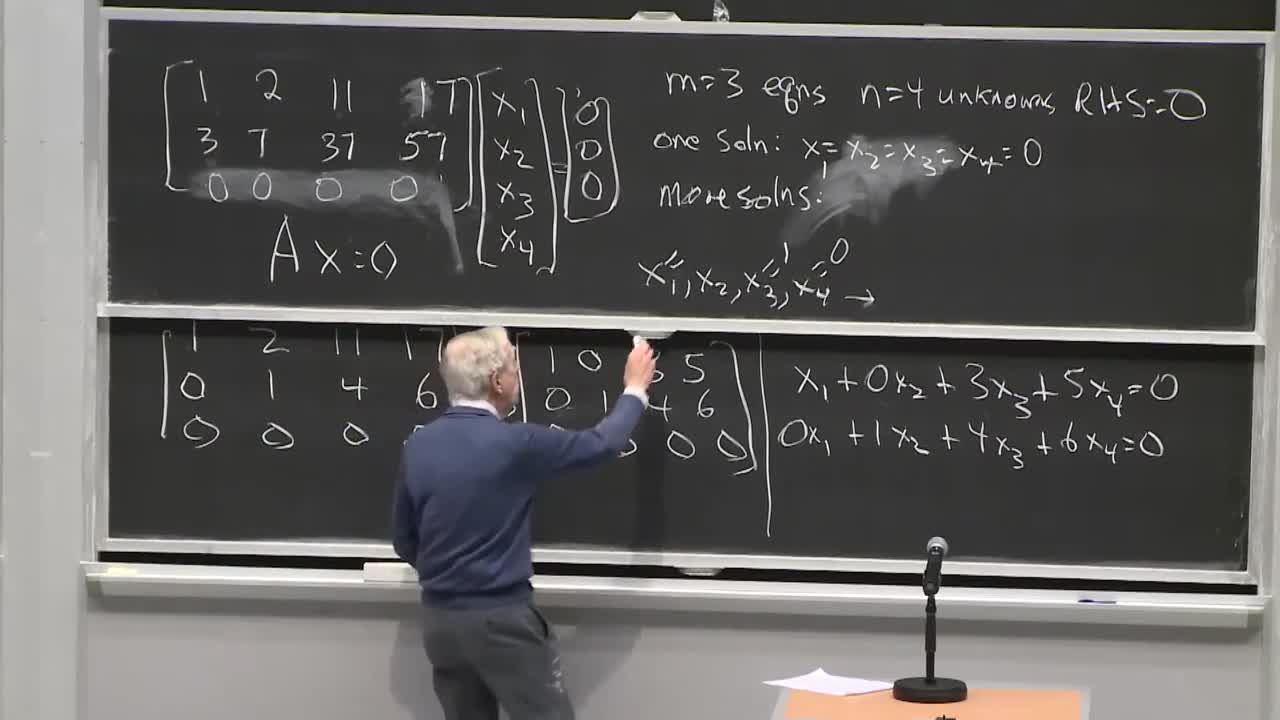 1 2 11 17 x1 0
3 7 37 57 x2 = 0
0 0 0 0 x3 0
x4
A x=0
m=3 eqns n=4 unknowns RHS=0
one soln: x1=x2=x3=x4=0
more solns:
1 0
x1=, x2, x3=, x4= →
1 2 11 17
0 1 4 6
0 0 0
1 0 3 5
0 1 4 6
0 0 0
x1+0x2+3x3+5x4=0
0x1+1x2+4x3+6x4=0